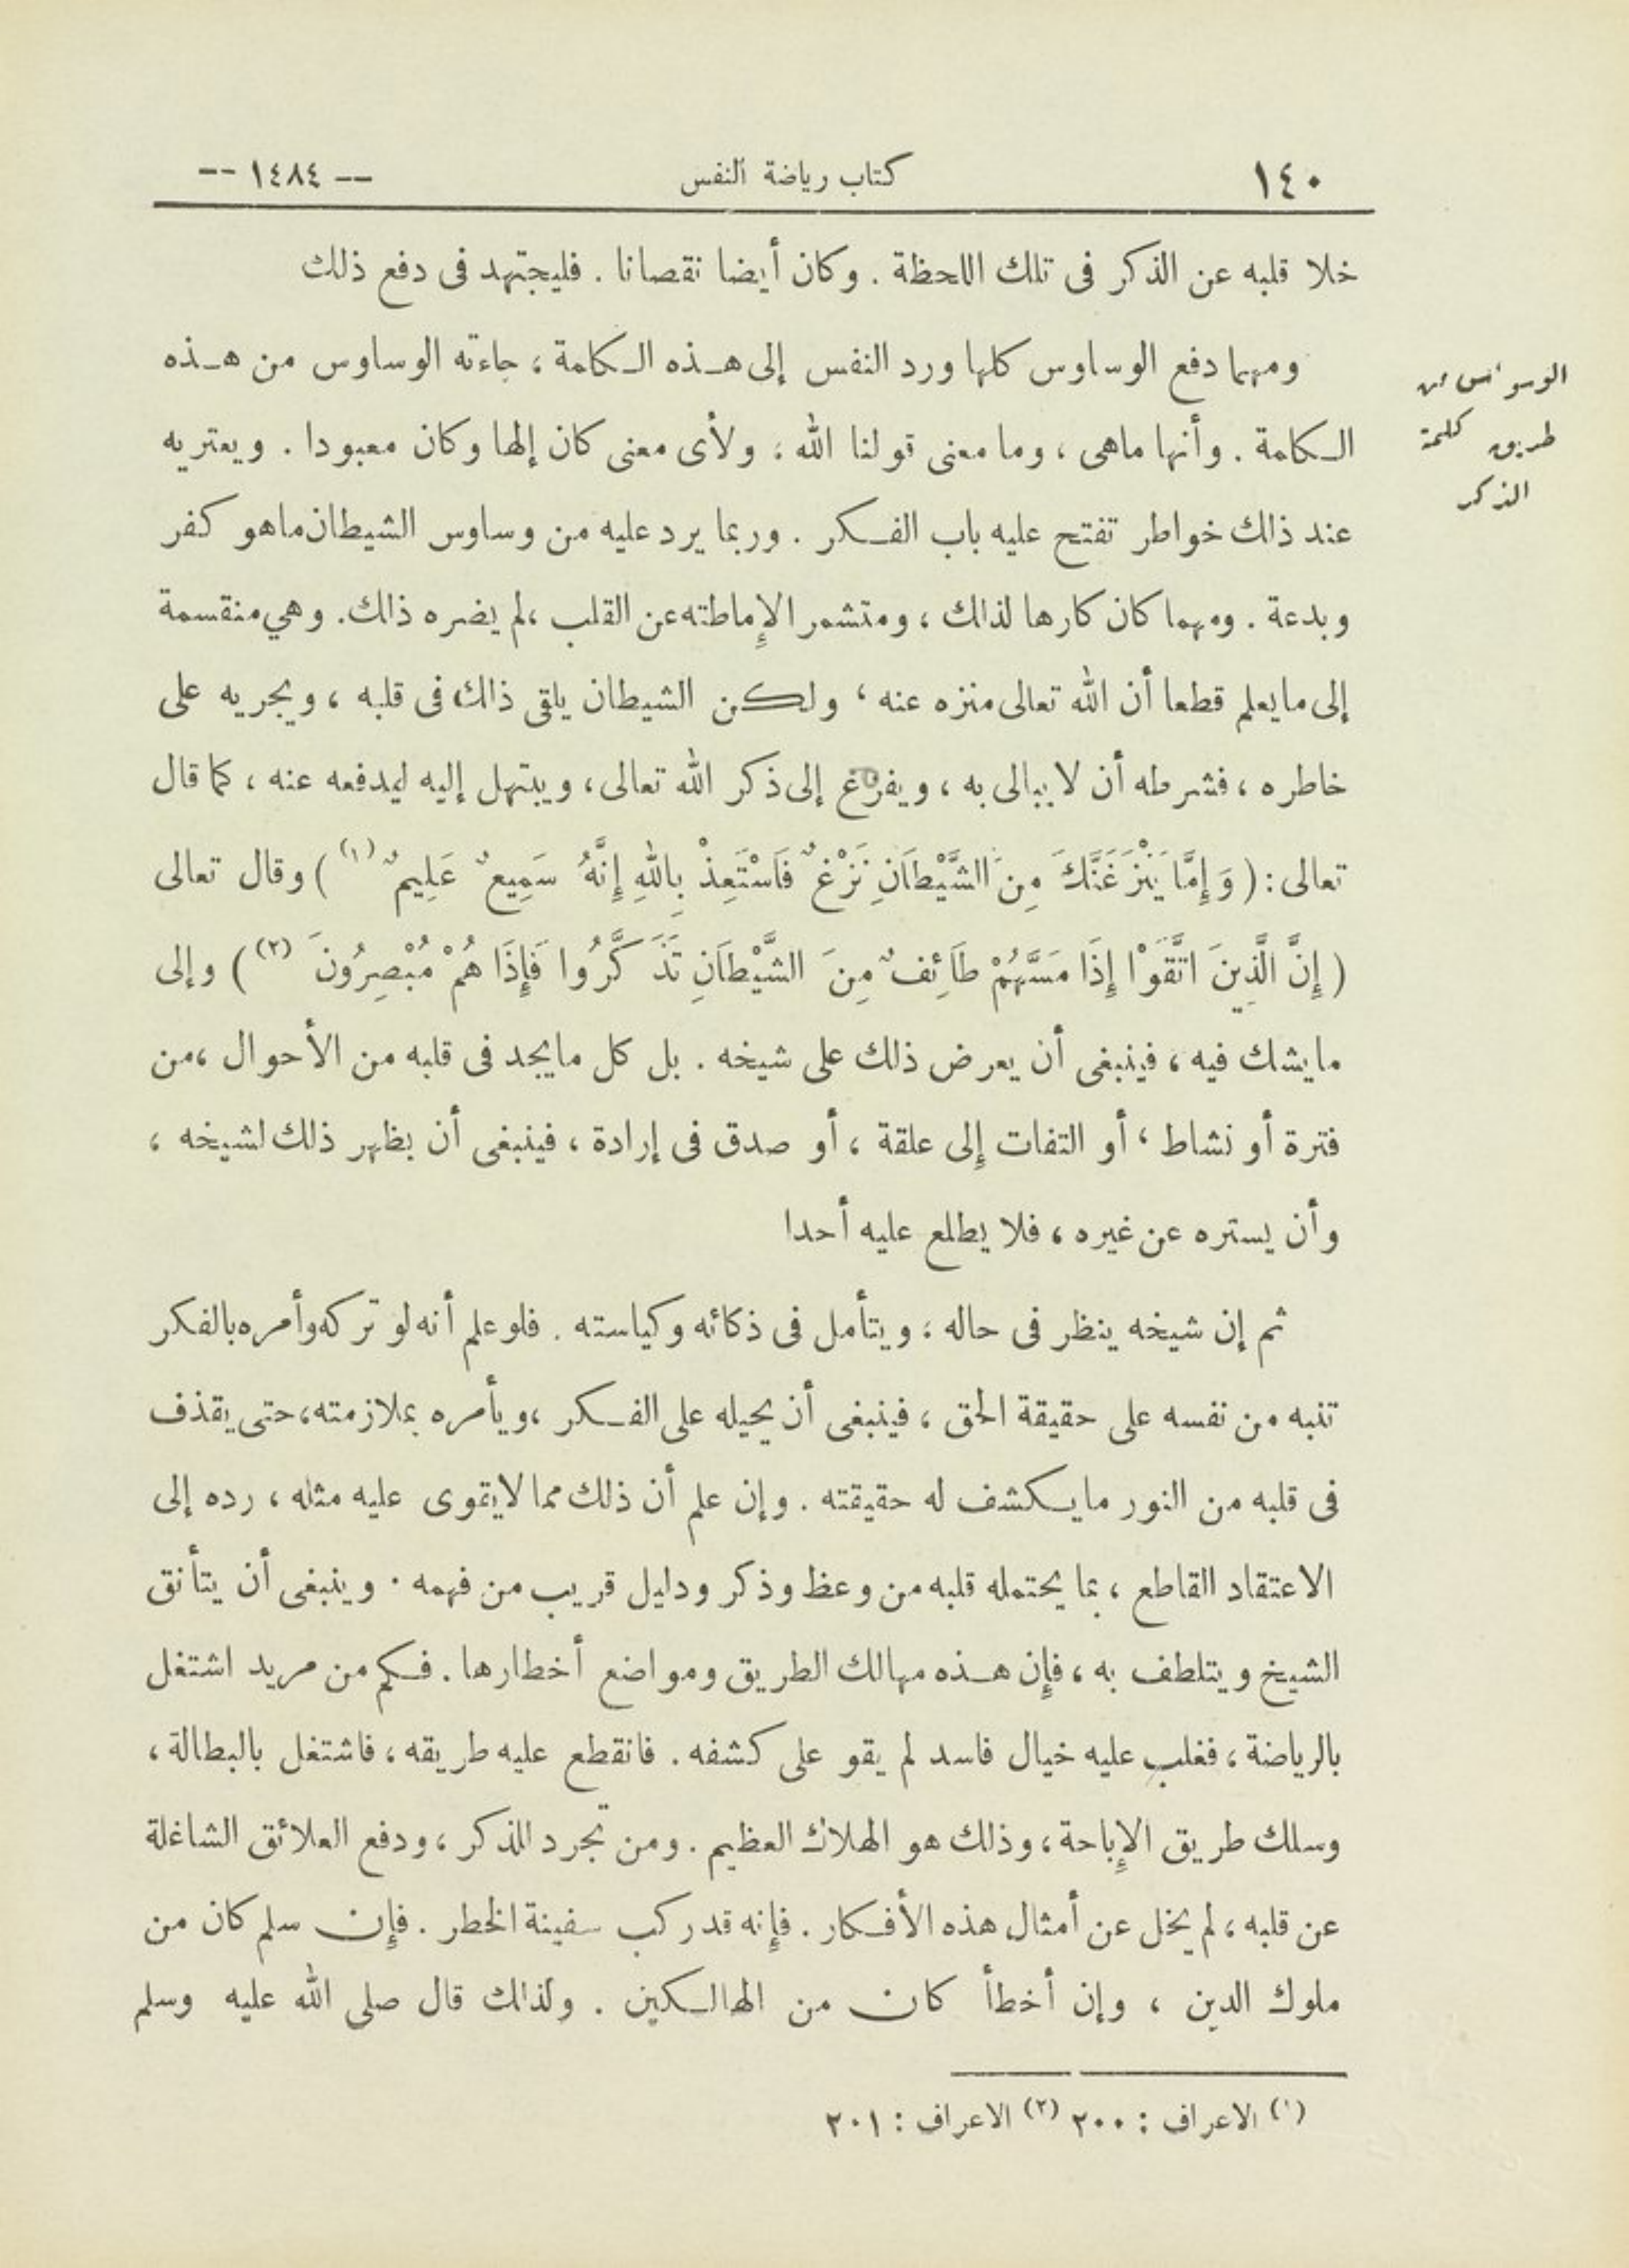 ١٤٠ كتاب رياضة النفس -- ١٤٨٤ --
خلا قلبه عن الذكر فى تلك اللحظة . وكان أيضا نقصانا . فليجتهد فى دفع ذلك
ومهما دفع الوساوس كلها ورد النفس إلى هذه الكلمة ، جاءته الوساوس من هذه
الوسواس من
الكلمة . وأنها ماهى ، وما معنى قولنا الله ، ولأى معنى كان إلها وكان معبودا . ويعتريه
طريق كلمة
عند ذلك خواطر تفتح عليه باب الفكر . وربما يرد عليه من وساوس الشيطان ماهو كفر
الذكر
وبدعة . ومهما كان كارها لذلك ، ومتشمر الإماطته عن القلب ، لم يضره ذلك . وهي منقسمة
إلى مايعلم قطعا أن الله تعالى منزه عنه ، ولكن الشيطان يلقى ذلك فى قلبه ، ويجريه على
خاطره ، فشرطه أن لا يبالى به ، ويفزغ إلى ذكر الله تعالى ، ويبتهل إليه ليدفعه عنه ، كما قال
تعالى : ( وَإِمَّا يَنْزَغَنَّكَ مِنَ الشَّيْطَانِ نَزْغٌ فَاسْتَعِذْ بِاللهِ إِنَّهُ سَمِيعٌ عَلِيمٌ (١) ) وقال تعالى
( إِنَّ الَّذِينَ اتَّقَوْا إِذَا مَسَّهُمْ طَائِفٌ مِنَ الشَّيْطَانِ تَذَكَّرُوا فَإِذَا هُمْ مُبْصِرُونَ (٢) ) وإلى
مايشك فيه ، فينبغى أن يعرض ذلك على شيخه . بل كل مايجد فى قلبه من الأحوال ، من
فترة أو نشاط ، أو التفات إلى علقة ، أو صدق فى إرادة ، فينبغى أن يظهر ذلك لشيخه ،
وأن يستره عن غيره ، فلا يطلع عليه أحدا
ثم إن شيخه ينظر فى حاله ، ويتأمل فى ذكائه وكياسته . فلو علم أنه لو تركه وأمره بالفكر
تنبه من نفسه على حقيقة الحق ، فينبغى أن يحيله على الفكر ، ويأمره بملازمته ، حتى يقذف
فى قلبه من النور مايكشف له حقيقته . وإن علم أن ذلك مما لايقوى عليه مثله ، رده إلى
الاعتقاد القاطع ، بما يحتمله قلبه من وعظ وذكر ودليل قريب من فهمه . وينبغى أن يتأنق
الشيخ ويتلطف به ، فإن هذه مهالك الطريق ومواضع أخطارها . فكم من مريد اشتغل
بالرياضة ، فغلب عليه خيال فاسد لم يقو على كشفه . فانقطع عليه طريقه ، فاشتغل بالبطالة ،
وسلك طريق الإباحة ، وذلك هو الهلاك العظيم . ومن تجرد للذكر ، ودفع العلائق الشاغلة
عن قلبه ، لم يخل عن أمثال هذه الأفكار . فإنه قد ركب سفينة الخطر . فإن سلم كان من
ملوك الدين ، وإن أخطأ كان من الهالكين . ولذلك قال صلى الله عليه وسلم
(١) الاعراف : ٢٠٠ (٢) الاعراف : ٢٠١